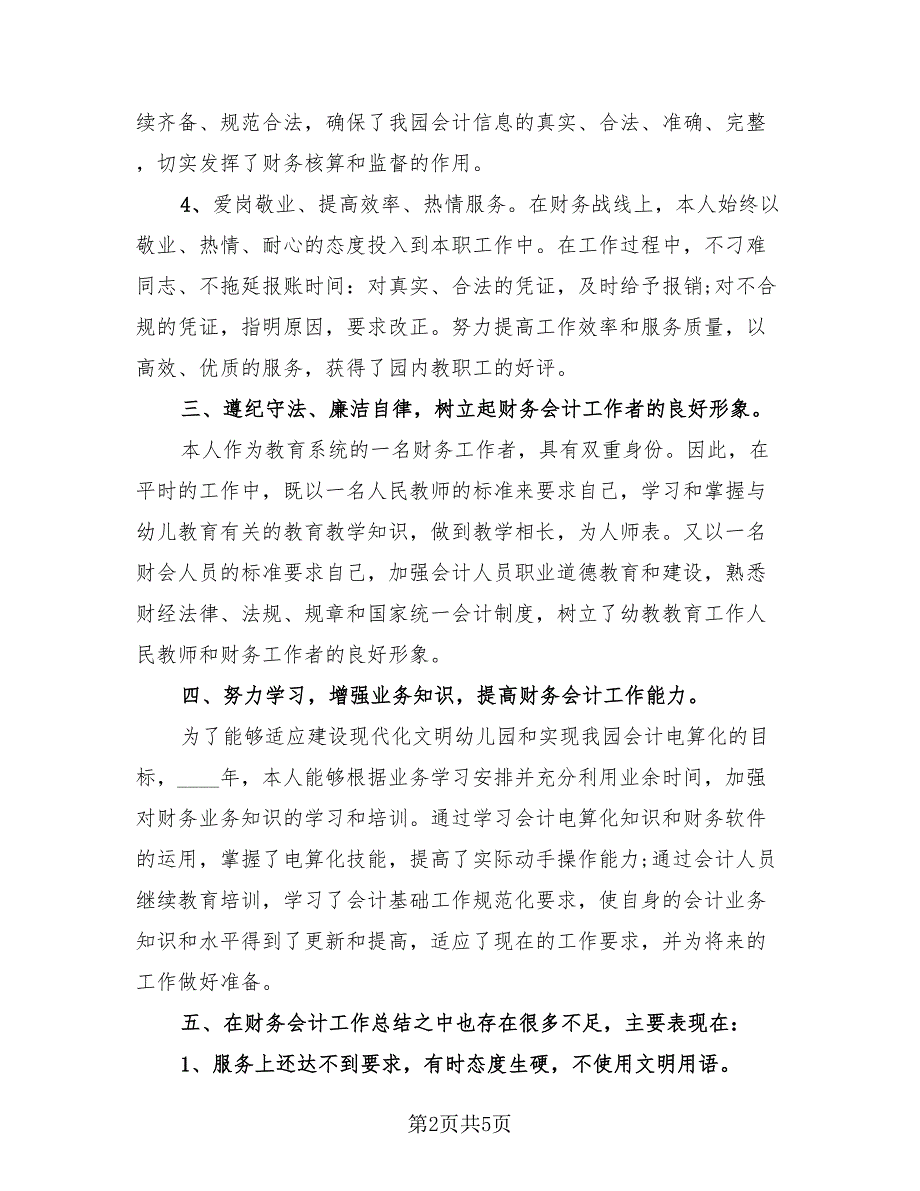 续齐备、规范合法，确保了我园会计信息的真实、合法、准确、完整
，切实发挥了财务核算和监督的作用。
4、爱岗敬业、提高效率、热情服务。在财务战线上，本人始终以
敬业、热情、耐心的态度投入到本职工作中。在工作过程中，不刁难
同志、不拖延报账时间：对真实、合法的凭证，及时给予报销;对不合
规的凭证，指明原因，要求改正。努力提高工作效率和服务质量，以
高效、优质的服务，获得了园内教职工的好评。
三、遵纪守法、廉洁自律，树立起财务会计工作者的良好形象。
本人作为教育系统的一名财务工作者，具有双重身份。因此，在
平时的工作中，既以一名人民教师的标准来要求自己，学习和掌握与
幼儿教育有关的教育教学知识，做到教学相长，为人师表。又以一名
财会人员的标准要求自己，加强会计人员职业道德教育和建设，熟悉
财经法律、法规、规章和国家统一会计制度，树立了幼教教育工作人
民教师和财务工作者的良好形象。
四、努力学习，增强业务知识，提高财务会计工作能力。
为了能够适应建设现代化文明幼儿园和实现我园会计电算化的目
标，____年，本人能够根据业务学习安排并充分利用业余时间，加强
对财务业务知识的学习和培训。通过学习会计电算化知识和财务软件
的运用，掌握了电算化技能，提高了实际动手操作能力;通过会计人员
继续教育培训，学习了会计基础工作规范化要求，使自身的会计业务
知识和水平得到了更新和提高，适应了现在的工作要求，并为将来的
工作做好准备。
五、在财务会计工作总结之中也存在很多不足，主要表现在：
1、服务上还达不到要求，有时态度生硬，不使用文明用语。
第2页共5页